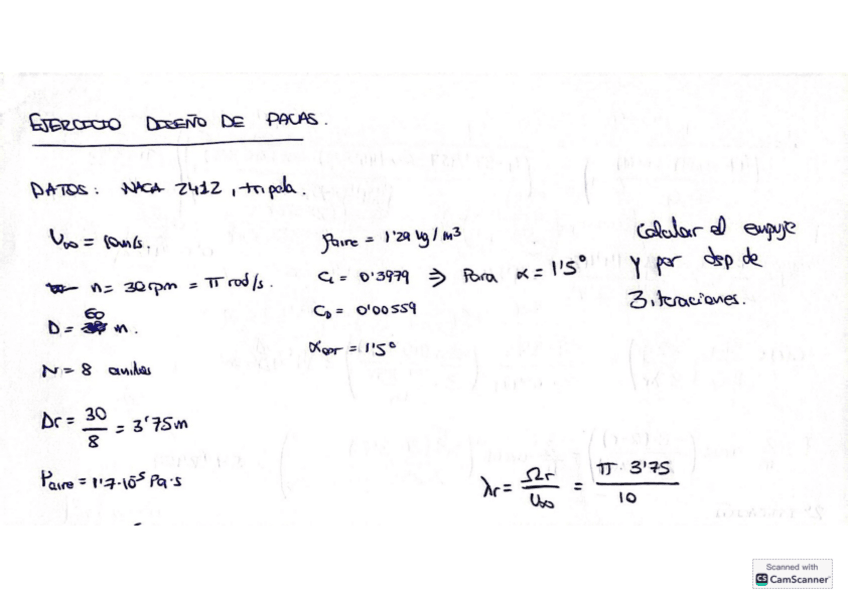 EJERCICIO DISEÑO DE PALAS.
DATOS: NACA 2412, tripala.
U∞ = 10m/s.
n = 30 rpm = π rad/s.
D = 60 m.
N = 8 anillos
Δr = 30/8 = 3'75m
μaire = 1'7·10⁻5 Pa·s
ρaire = 1'29 kg/m³
CL = 0'3979 ⇒ Para α = 1'5°
CD = 0'00559
αopt = 1'5°
Calcular el empuje
y par desp de
3 iteraciones.
λr = Ωr/U∞ = π·3'75/10
Scanned with
CS CamScanner